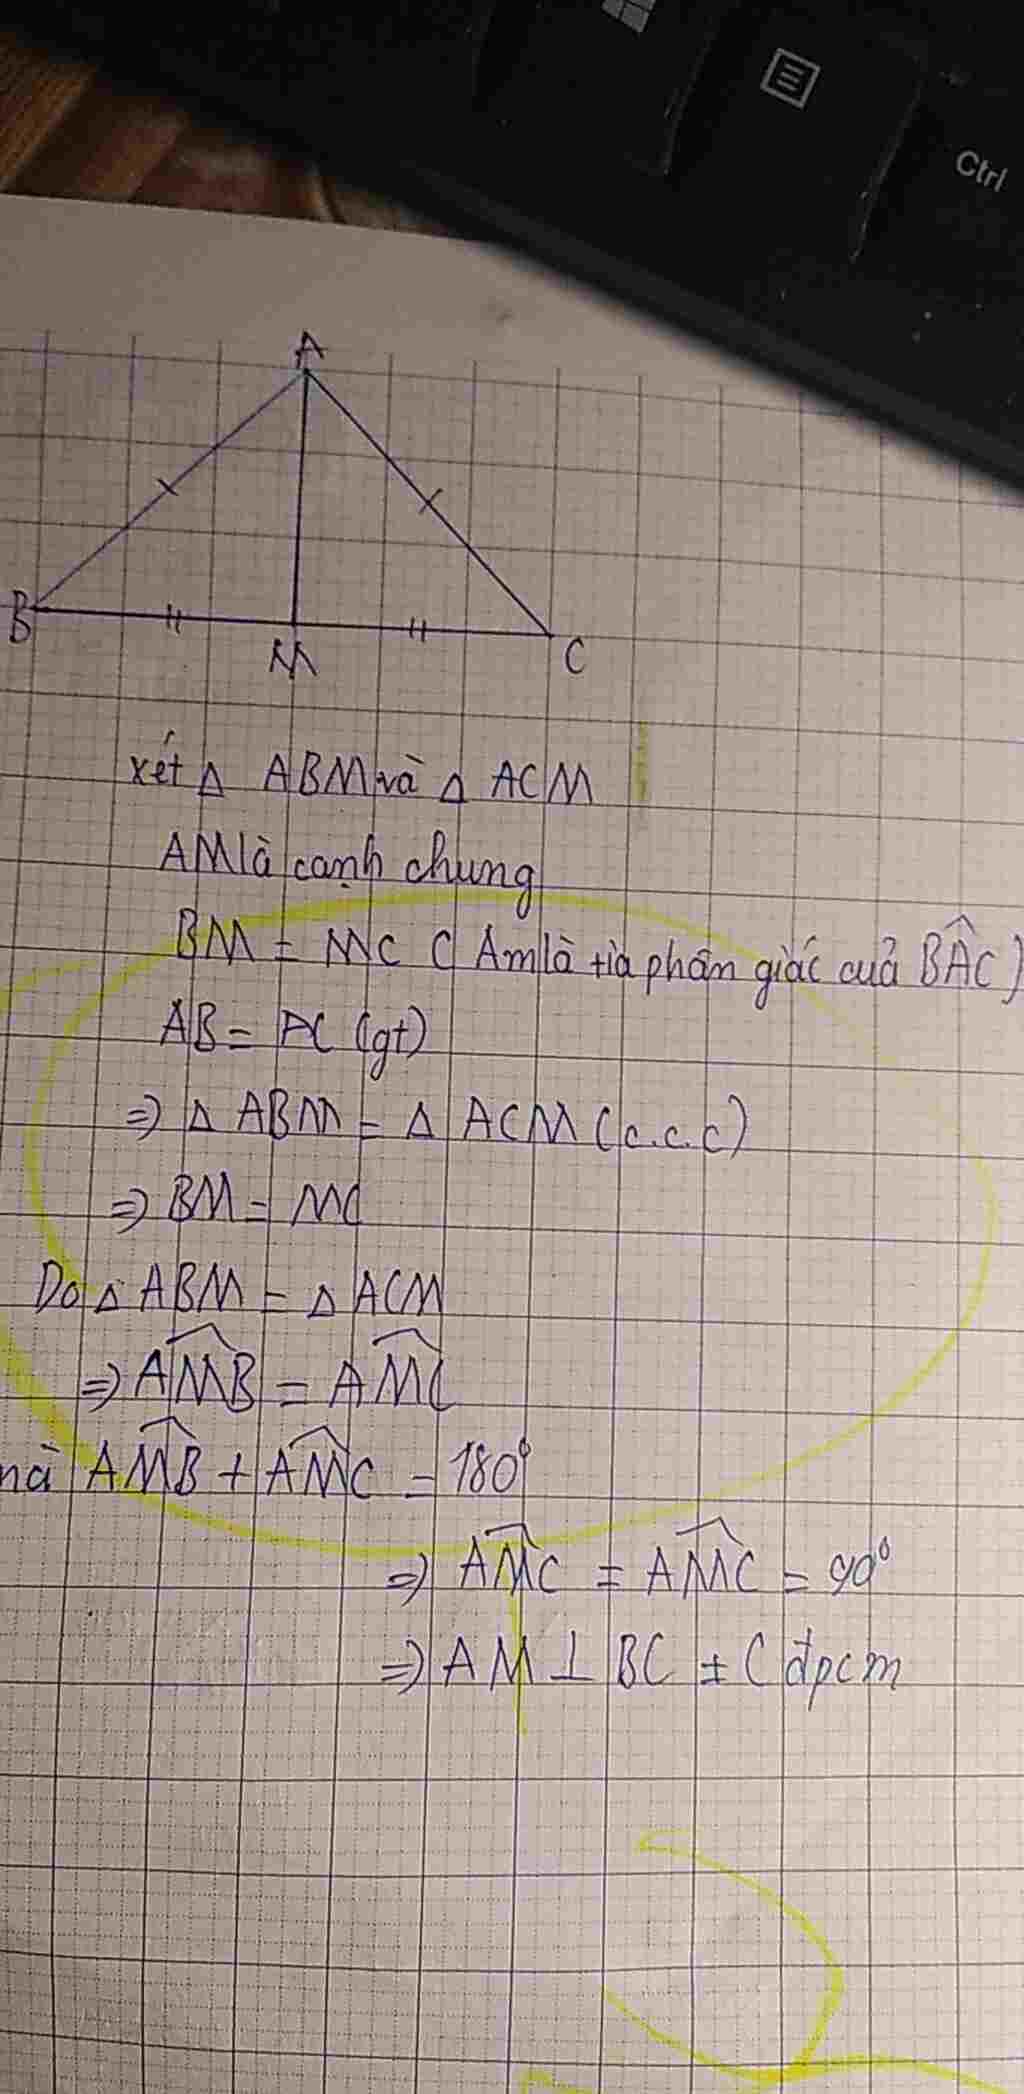 Ctrl
A
B
M
C
xét Δ ABM và Δ ACM
AM là cạnh chung
BM = MC ( Am là tia phân giác cuả BÂC )
AB = AC (gt)
=) Δ ABM = Δ ACM (c.c.c)
=) BM = MC
Do Δ ABM = Δ ACM
=) AM̂B = AM̂C
mà AM̂B + AM̂C = 180°
=) AM̂C = AM̂C = 90°
=) AM ⊥ BC ± C đpcm